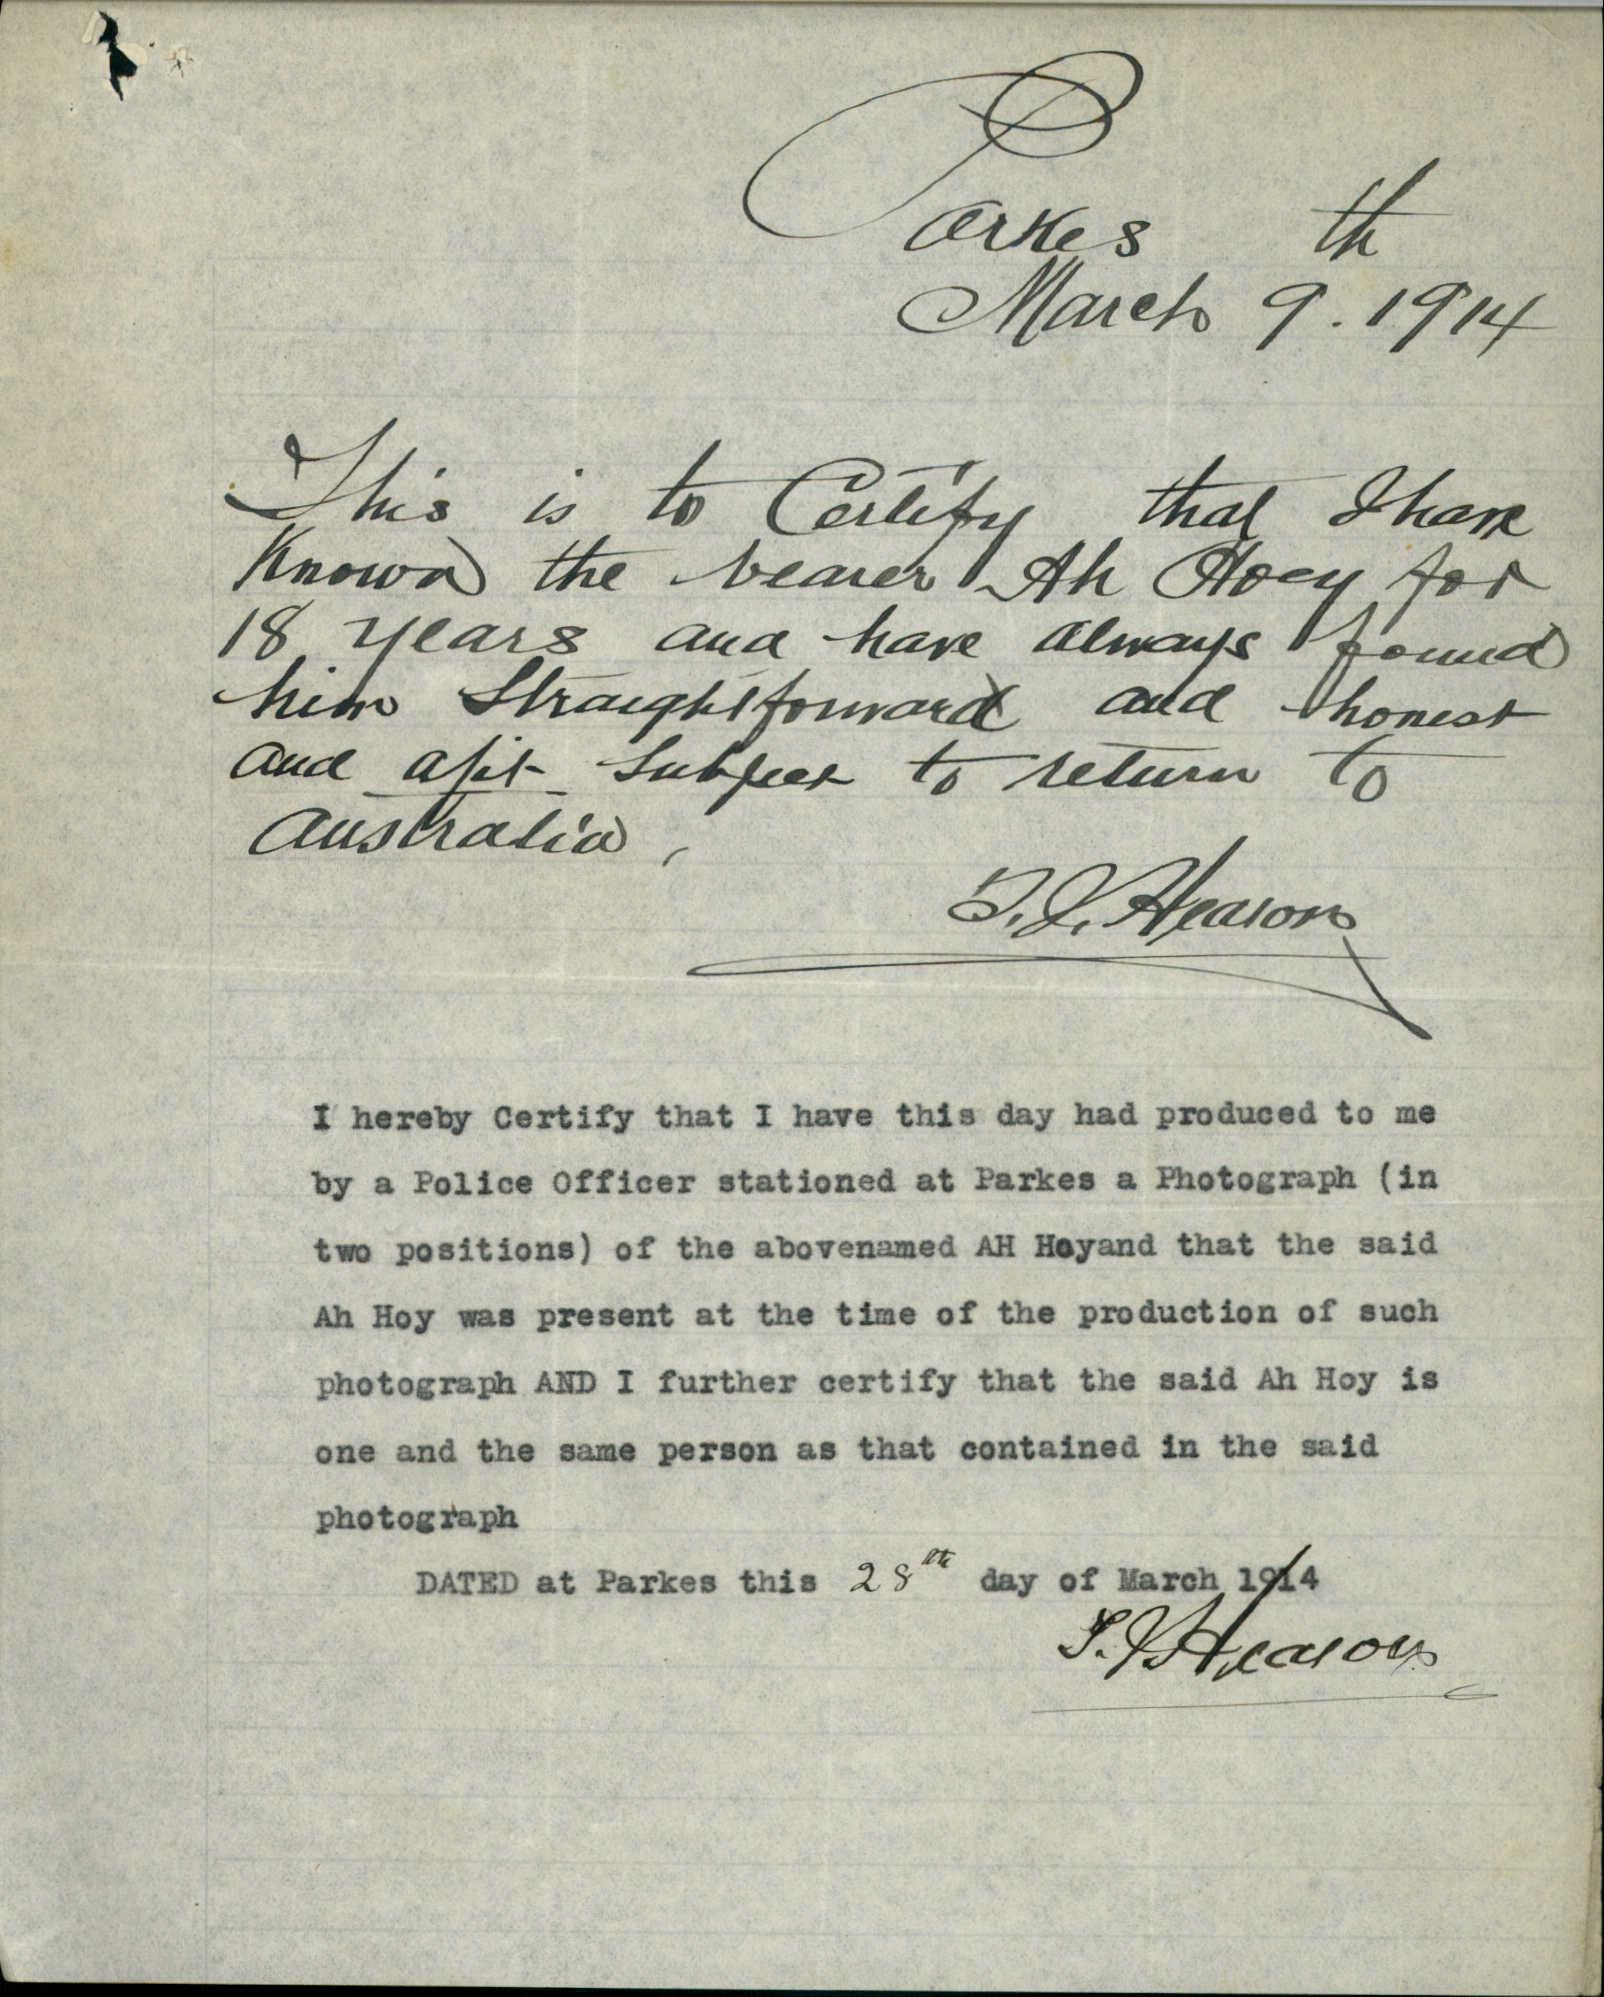 Parkes th
March 9. 1914
This is to Certify that I have
Known the bearer Ah Hoey for
18 years and have always found
him Straightforward and honest
and a fit Subject to return to
Australia,
T. J. Heason
I hereby Certify that I have this day had produced to me
by a Police Officer stationed at Parkes a Photograph (in
two positions) of the abovenamed AH Hoyand that the said
Ah Hoy was present at the time of the production of such
photograph AND I further certify that the said Ah Hoy is
one and the same person as that contained in the said
photograph
DATED at Parkes this 28th day of March 1914
T. J. Heason